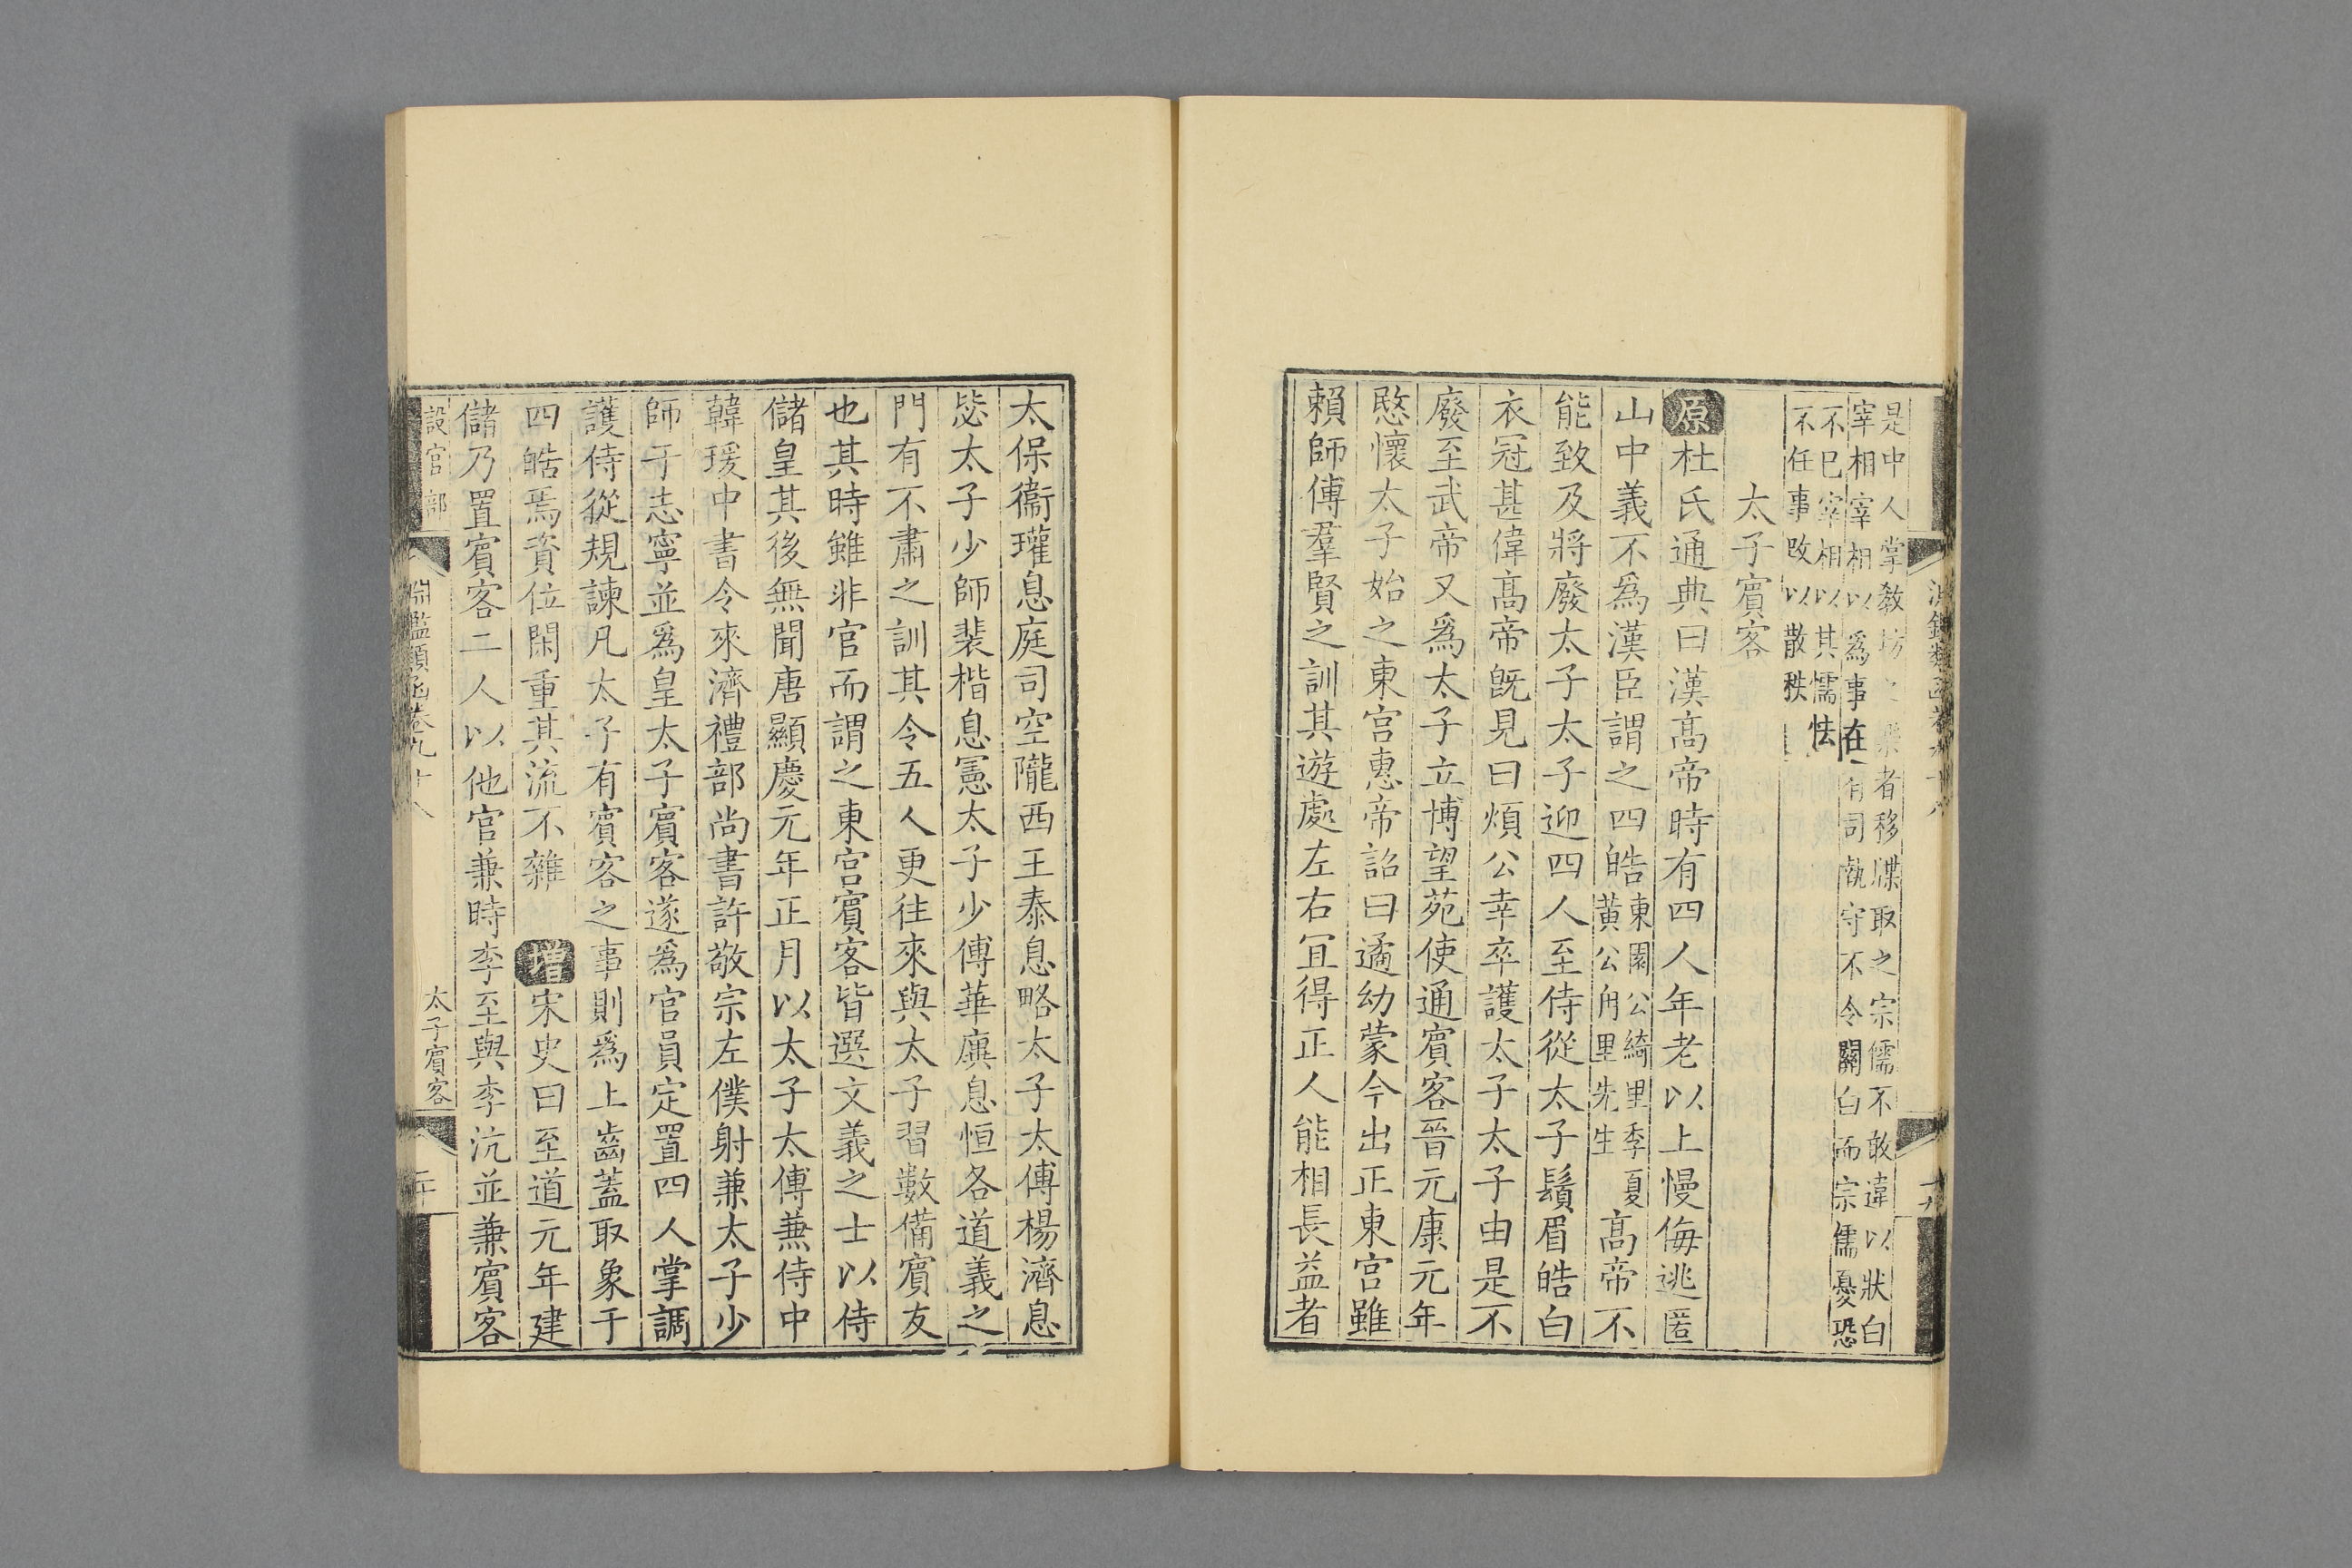 是中人掌敎坊之樂者移牒取之宗儒不敢違以狀白
宰相宰相以爲事在有司執守不令關白而宗儒憂恐
不已宰相以其懦怯
不任事改以散秩
太子賓客
原杜氏通典曰漢高帝時有四人年老以上慢侮逃匿
山中義不爲漢臣謂之四皓東園公綺里季夏黃公甪里先生高帝不
能致及將廢太子太子迎四人至侍從太子鬚眉皓白
衣冠甚偉高帝旣見曰煩公幸卒護太子太子由是不
廢至武帝又爲太子立博望苑使通賓客晉元康元年
愍懷太子始之東宮惠帝詔曰遹幼蒙今出正東宮雖
賴師傅羣賢之訓其遊處左右宜得正人能相長益者
太保衞瓘息庭司空隴西王泰息略太子太傅楊濟息
毖太子少師裴楷息憲太子少傅華廙息恒各道義之
門有不肅之訓其令五人更往來與太子習數備賓友
也其時雖非官而謂之東宮賓客皆選文義之士以侍
儲皇其後無聞唐顯慶元年正月以太子太傅兼侍中
韓瑗中書令來濟禮部尚書許敬宗左僕射兼太子少
師于志寧並爲皇太子賓客遂爲官員定置四人掌調
護侍從規諫凡太子有賓客之事則爲上齒蓋取象于
四皓焉資位閑重其流不雜增宋史曰至道元年建
儲乃置賓客二人以他官兼時李至與李沆並兼賓客
設官部
淵鑑類函卷九十八
太子賓客
二十